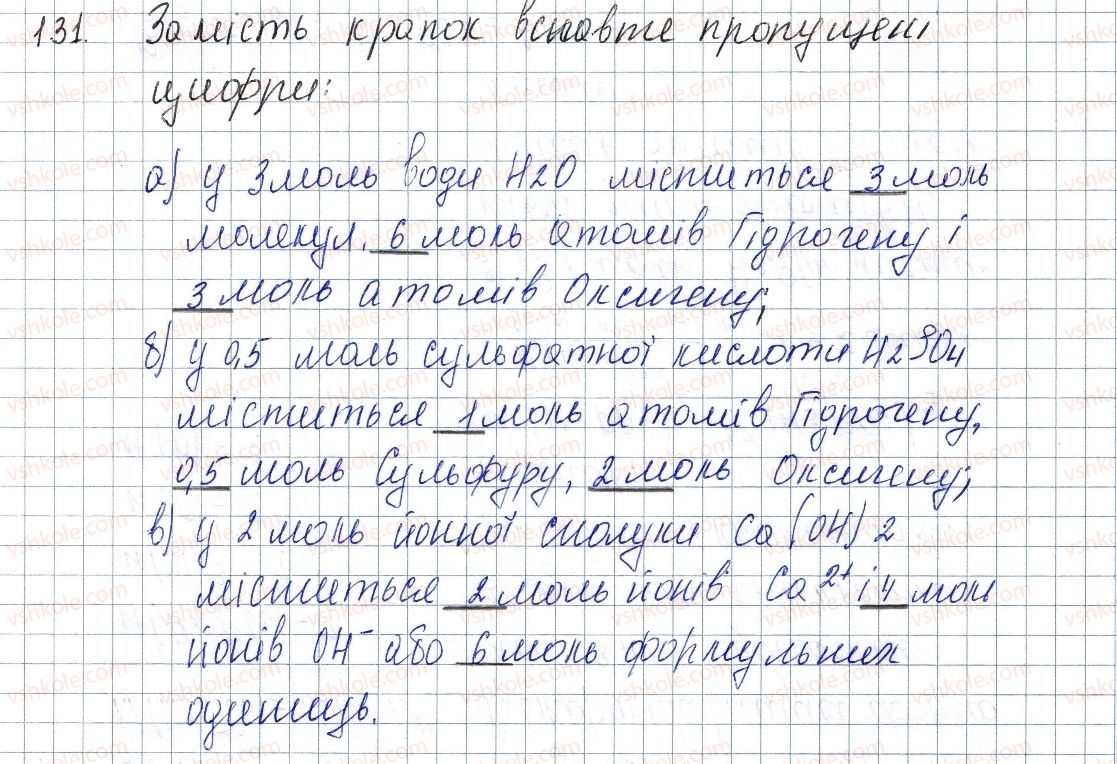 131. Замість крапок вставте пропущені
цифри:
а) у 3 моль води H2O міститься 3 моль
молекул, 6 моль атомів Гідрогену і
3 моль атомів Оксигену;
б) у 0,5 моль сульфатної кислоти H2SO4
міститься 1 моль атомів Гідрогену,
0,5 моль Сульфуру, 2 моль Оксигену;
в) у 2 моль йонної сполуки Ca(OH)2
міститься 2 моль йонів Ca2+ і 4 моль
йонів OH- або 6 моль формульних
одиниць.